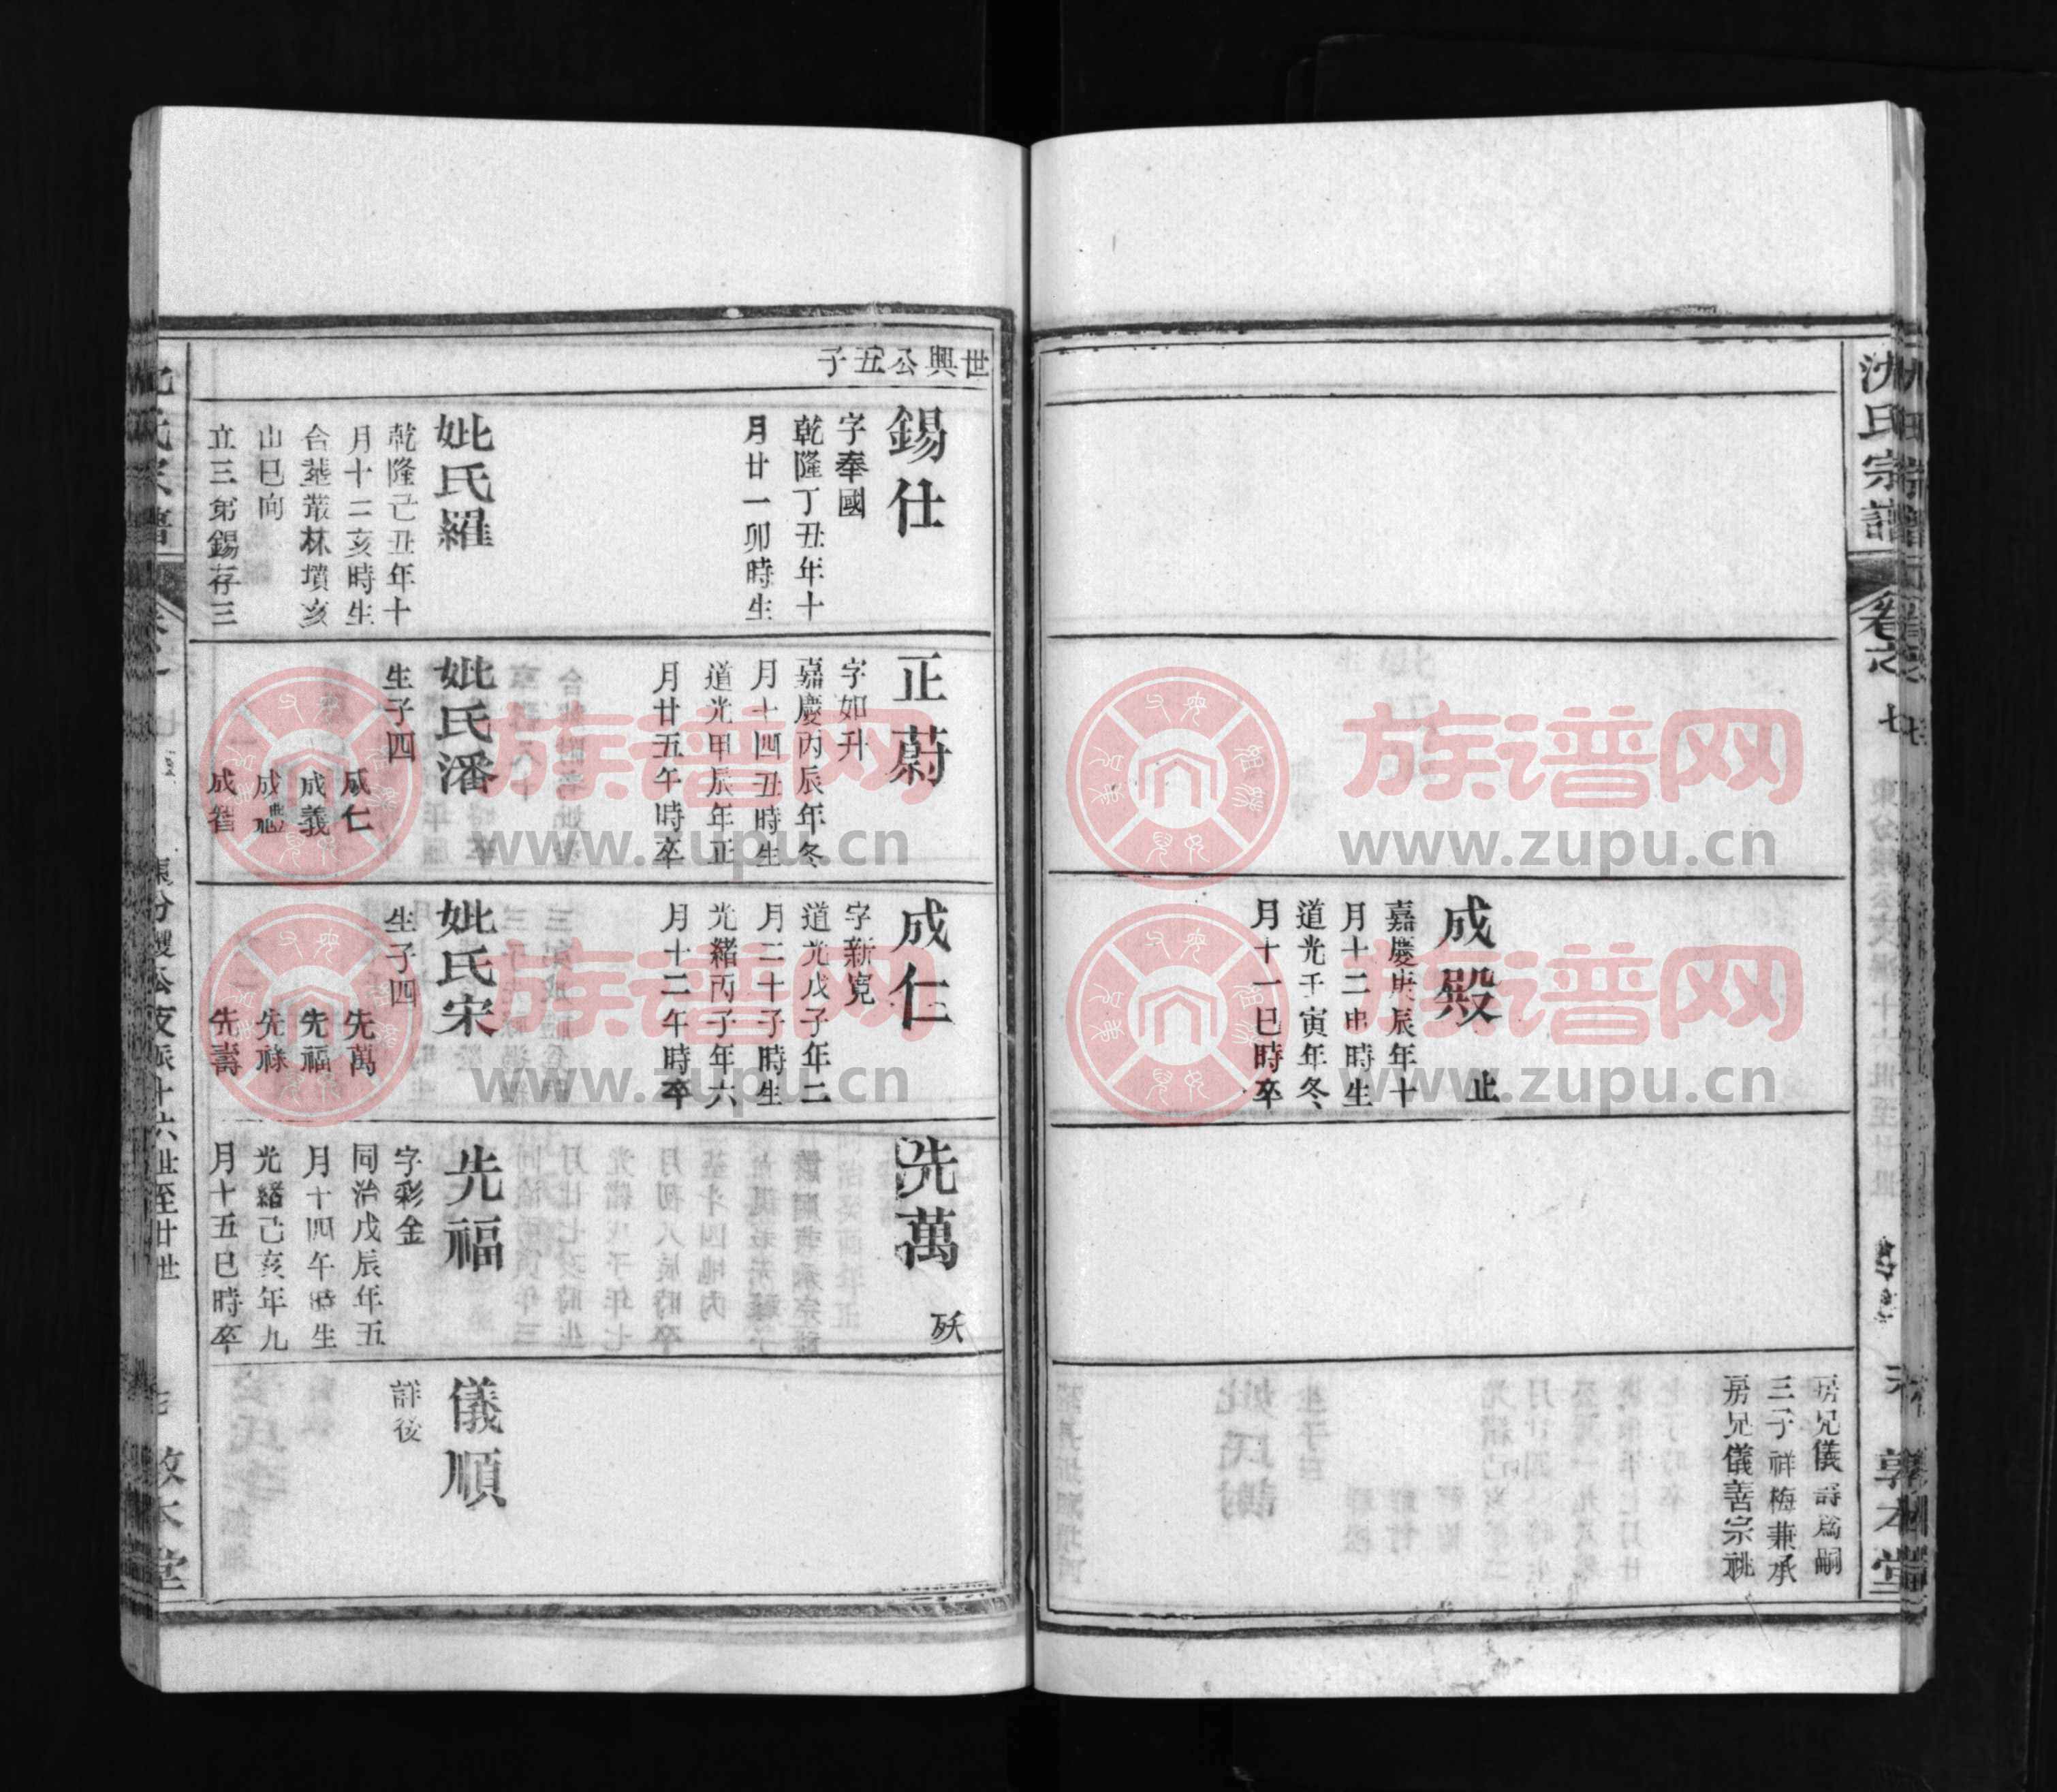 沈氏宗譜
卷之七
敦本堂
成殿
止
嘉慶庚辰年十
月十二申時生
道光壬寅年冬
月十一巳時卒
房兄儀壽爲嗣
三子祥梅兼承
房兄儀善宗祧
世興公五子
錫仕
字奉國
乾隆丁丑年十
月廿一卯時生
妣氏羅
乾隆己丑年十
月十二亥時生
合塟叢林墳亥
山巳向
立三弟錫存三
正蔚
字如升
嘉慶丙辰年冬
月十四丑時生
道光甲辰年正
月廿五午時卒
妣氏潘
生子四
成仁
成義
成禮
成智
成仁
字新寬
道光戊子年二
月二十子時生
光緒丙子年六
月十二午時卒
妣氏宋
生子四
先萬
先福
先祿
先壽
先萬
殀
先福
字彩金
同治戊辰年五
月十四午時生
光緒己亥年九
月十五巳時卒
儀順
詳後
支派十六世至廿世
族谱网
www.zupu.cn
族谱网
www.zupu.cn
族谱网
www.zupu.cn
族谱网
www.zupu.cn